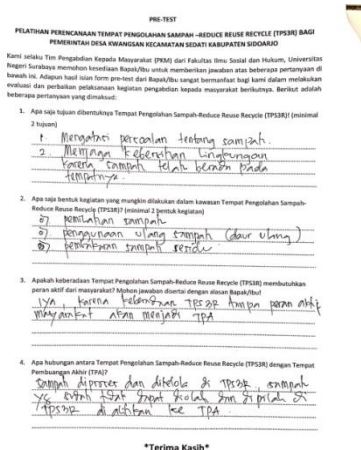 PRE-TEST
PELATIHAN PERENCANAAN TEMPAT PENGOLAHAN SAMPAH –REDUCE REUSE RECYCLE (TPS3R) BAGI
PEMERINTAH DESA KWANGSAN KECAMATAN SEDATI KABUPATEN SIDOARJO
Kami selaku Tim Pengabdian Kepada Masyarakat (PKM) dari Fakultas Ilmu Sosial dan Hukum, Universitas
Negeri Surabaya memohon kesediaan Bapak/Ibu untuk memberikan jawaban atas beberapa pertanyaan di
bawah ini. Adapun hasil isian form pre-test dari Bapak/Ibu sangat bermanfaat bagi kami dalam melakukan
evaluasi dan perbaikan pelaksanaan kegiatan pengabdian kepada masyarakat berikutnya. Berikut adalah
beberapa pertanyaan yang dimaksud:
1. Apa saja tujuan dibentuknya Tempat Pengolahan Sampah-Reduce Reuse Recycle (TPS3R)! (minimal
2 tujuan)
1. Mengatasi persoalan tentang sampah.
2. Menjaga Kebersihan Lingkungan
Karena sampah telah berada pada
tempatnya.
2. Apa saja bentuk kegiatan yang mungkin dilakukan dalam kawasan Tempat Pengolahan Sampah-
Reduce Reuse Recycle (TPS3R)? (minimal 2 bentuk kegiatan)
pemilahan sampah
penggunaan ulang sampah (daur ulang)
sampah residu
3. Apakah keberadaan Tempat Pengolahan Sampah-Reduce Reuse Recycle (TPS3R) membutuhkan
peran aktif dari masyarakat? Mohon jawaban disertai dengan alasan Bapak/Ibu!
Iya, karena keberadaan TPS3R tanpa peran aktif
masyarakat akan menjadi TPA
4. Apa hubungan antara Tempat Pengolahan Sampah-Reduce Reuse Recycle (TPS3R) dengan Tempat
Pembuangan Akhir (TPA)?
Sampah diproses dan dikelola di TPS3R, sampah
yg sudah tidak dapat diolah dan dipilah di
TPS3R di alihkan ke TPA.
*Terima Kasih*